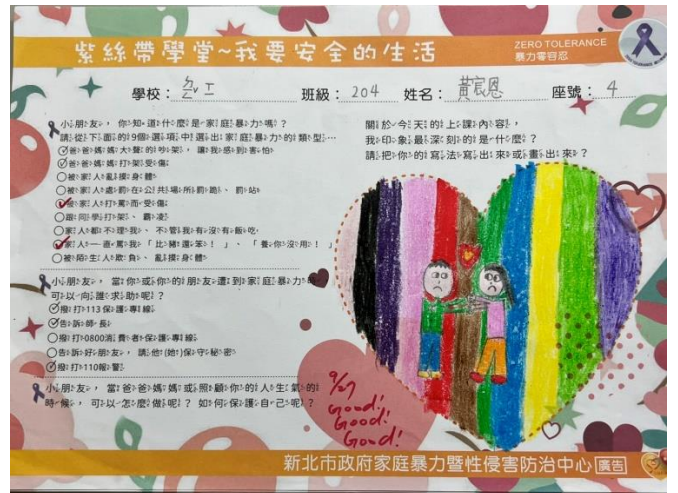 紫絲帶學堂~我要安全的生活
ZERO TOLERANCE
暴力零容忍
學校： 班級：204 姓名：黃宸恩 座號：4
小朋友，你知道什麼是家庭暴力嗎？
請從下面的9個選項中選出家庭暴力的類型…
爸爸媽媽大聲的吵架，讓我感到害怕
爸爸媽媽打架受傷
被家人亂摸身體
被家人處罰在公共場所罰跪、罰站
被家人打罵而受傷
跟同學打架、霸凌
家人都不理我、不管我有沒有飯吃
家人一直罵我「比豬還笨！」、「養你沒用！」
被陌生人欺負、亂摸身體
小朋友，當你或你的朋友遭到家庭暴力時
可以向誰求助呢？
撥打113保護專線
告訴師長
撥打0800消費者保護專線
告訴好朋友，請他(她)保守秘密
撥打110報警
小朋友，當爸爸媽媽或照顧你的人生氣的
時候，可以怎麼做呢？如何保護自己呢？
關於今天的上課內容，
我印象最深刻的是什麼？
請把你的寫法寫出來或畫出來？
9/27
Good!
Good!
Good!
新北市政府家庭暴力暨性侵害防治中心 廣告